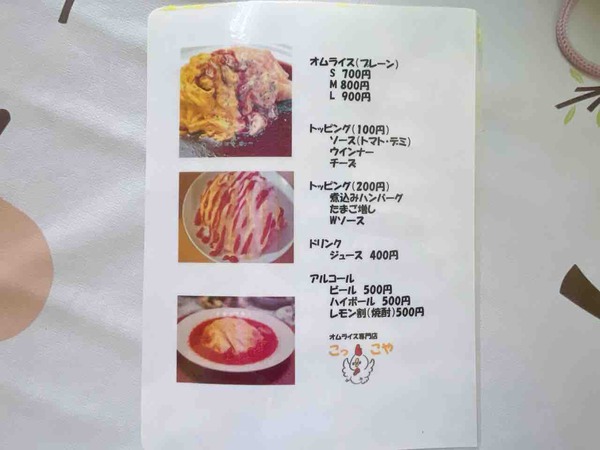 オムライス(プレーン)
S 700円
M 800円
L 900円
トッピング(100円)
ソース(トマト・デミ)
ウインナー
チーズ
トッピング(200円)
煮込みハンバーグ
たまご増し
Wソース
ドリンク
ジュース 400円
アルコール
ビール 500円
ハイボール 500円
レモン割(焼酎)500円
オムライス専門店
こっこや